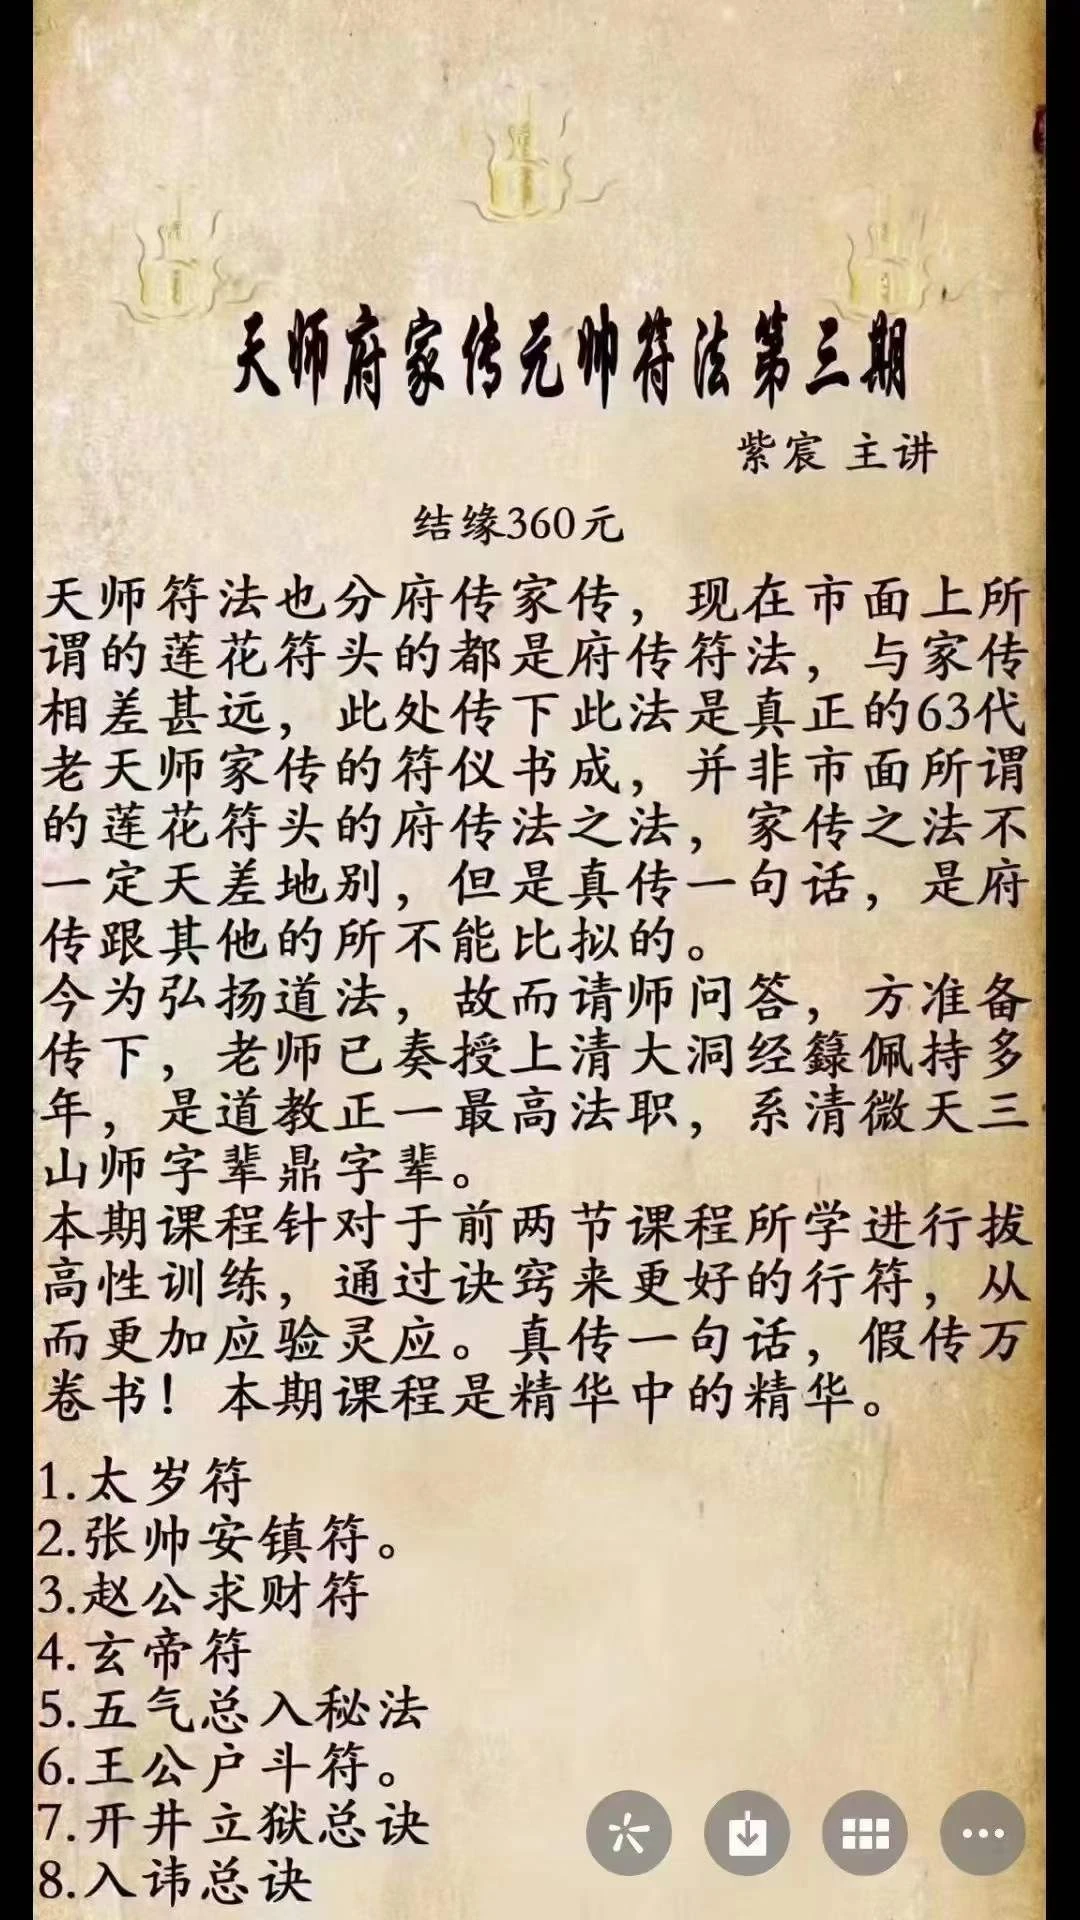 天师府家传元帅符法第三期
紫宸 主讲
结缘360元
天师符法也分府传家传，现在市面上所
谓的莲花符头的都是府传符法，与家传
相差甚远，此处传下此法是真正的63代
老天师家传的符仪书成，并非市面所谓
的莲花符头的府传法之法，家传之法不
一定天差地别，但是真传一句话，是府
传跟其他的所不能比拟的。
今为弘扬道法，故而请师问答，方准备
传下，老师已奏授上清大洞经籙佩持多
年，是道教正一最高法职，系清微天三
山师字辈鼎字辈。
本期课程针对于前两节课程所学进行拔
高性训练，通过诀窍来更好的行符，从
而更加应验灵应。真传一句话，假传万
卷书！本期课程是精华中的精华。
1.太岁符
2.张帅安镇符。
3.赵公求财符
4.玄帝符
5.五气总入秘法
6.王公户斗符。
7.开井立狱总诀
8.入讳总诀